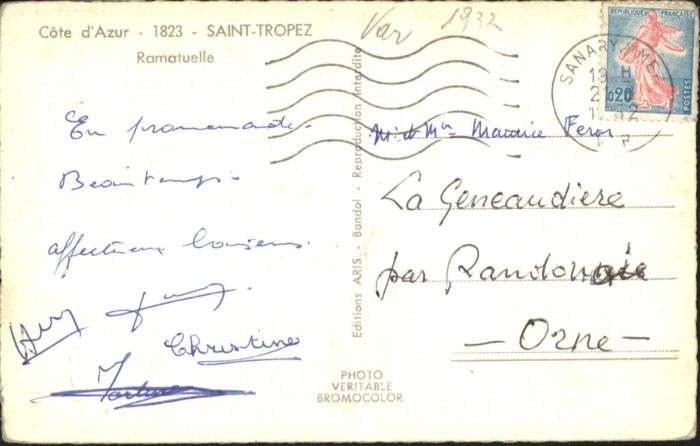 Côte d'Azur - 1823 - SAINT-TROPEZ
Ramatuelle
Var 1932
RÉPUBLIQUE FRANÇAISE
0,20
POSTES
SANARY
En promenade -
Beau temps -
affectueux baisers
Christine
Editions ARIS - Bandol - Reproduction interdite
M. et Mme Maurice
La Geneaudiere
par Randonnai
- Orne -
PHOTO
VERITABLE
BROMOCOLOR